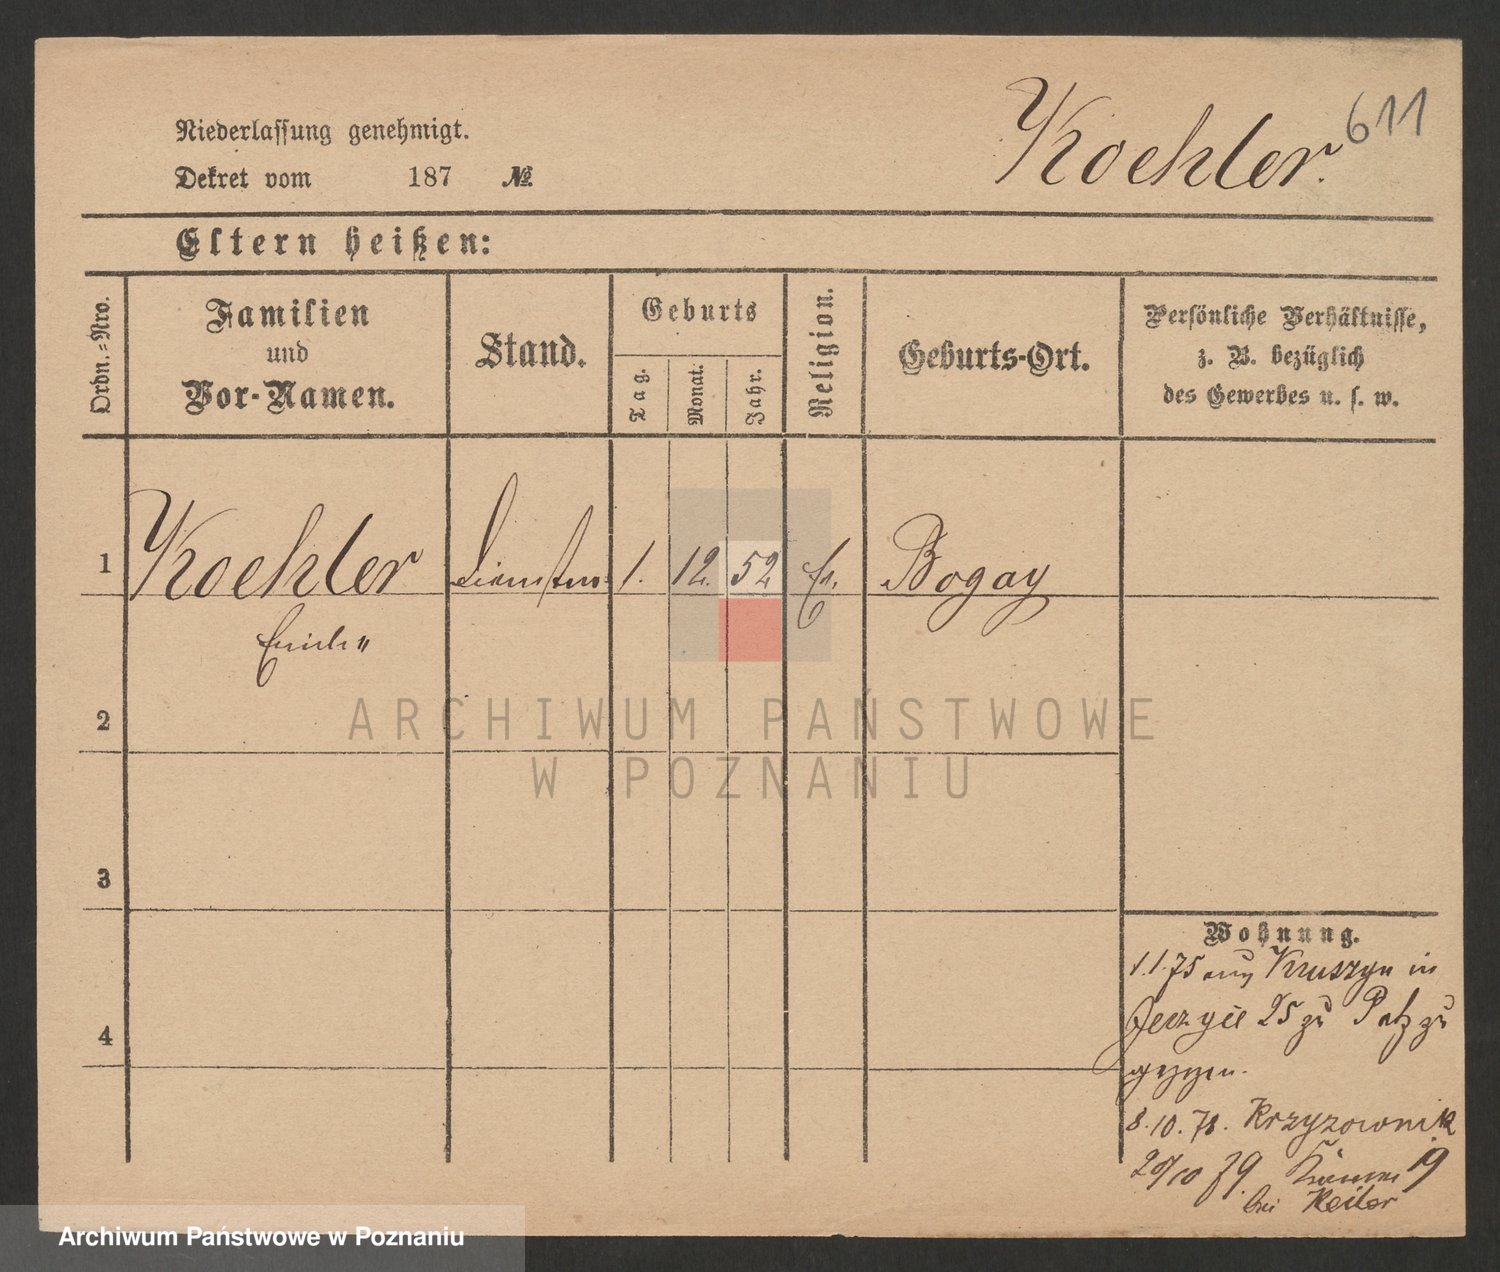 Koehler. 611
Niederlassung genehmigt.
Dekret vom 187 №
Eltern heißen:
Ordn.=Nro.
Familien
und
Vor-Namen.
Stand.
Geburts
Tag.
Monat.
Jahr.
Religion.
Geburts-Ort.
Persönliche Verhältnisse,
z. B. bezüglich
des Gewerbes u. s. w.
1 Koehler 1. 12. 52 Bogay
2
3
4
Wohnung.
1.1.75 aus Kruszyn in
25 zu zu
gezogen.
8.10.78. Krzyzownik
20/10 79. 19
bei Keiler
ARCHIWUM PAŃSTWOWE
W POZNANIU
Archiwum Państwowe w Poznaniu